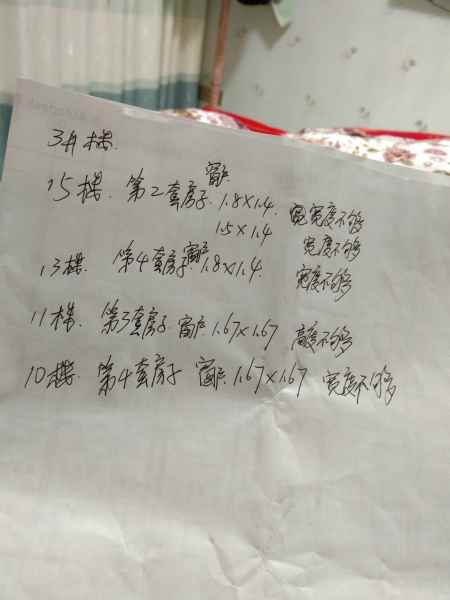 3#楼.
15楼. 第2套房子. 窗户 1.8×1.4. 宽宽度不够
1.5×1.4 宽度不够
13楼. 第4套房子 窗户 1.8×1.4. 宽度不够
11楼. 第3套房子 窗户 1.67×1.67 高度不够
10楼. 第4套房子 窗户 1.67×1.67 宽度不够